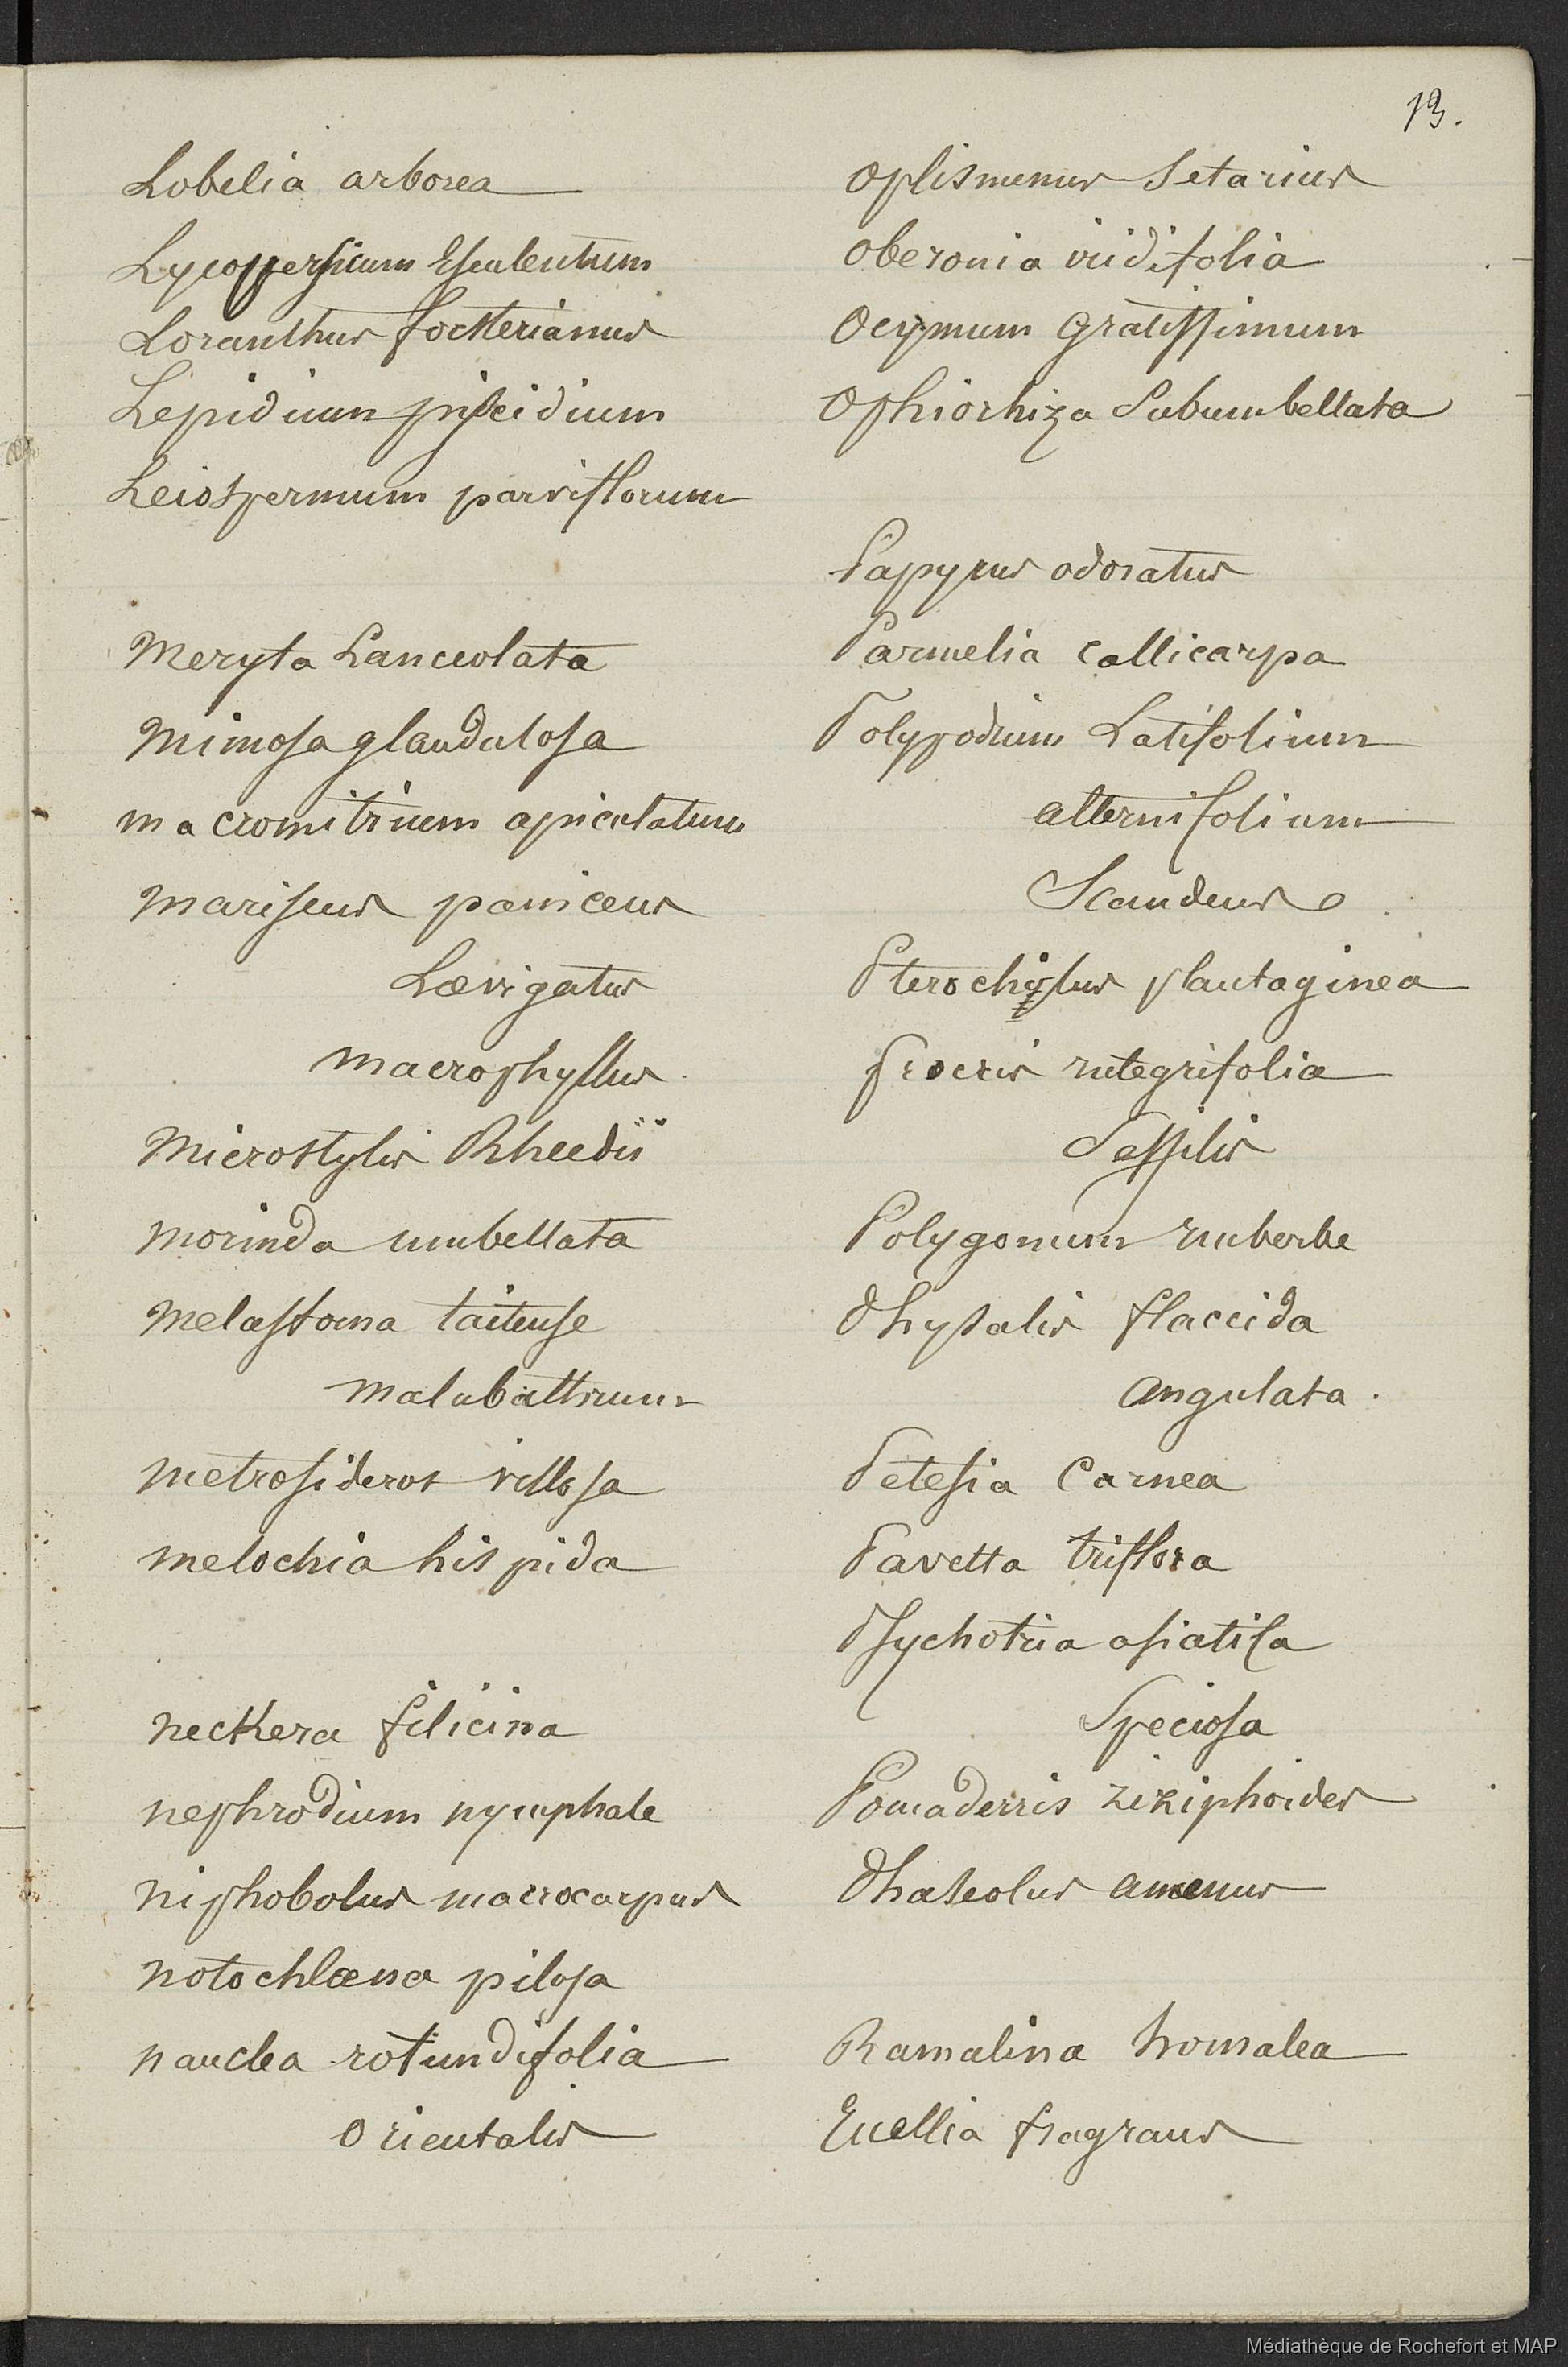 13.
Lobelia arborea
Lycoppersicum Esculentum
Loranthus forsterianus
Lepidium piscidium
Leiospermum parviflorum
Meryta Lanceolata
Mimosa glandulosa
macromitrium apiculatum
Mariscus paniceus
Lævigatus
macrophyllus.
Microstylis Rheedii
Morinda umbellata
Melastoma taitense
malabattrum
metrosideros villosa
melochia hispida
neckera filicina
nephrodium nymphale
niphobolus macrocarpus
notochlæna pilosa
nauclea rotundifolia
orientalis
Oplismenus Setarius
Oberonia iridifolia
Ocymum gratissimum
Ophiorhiza Subumbellata
Papyrus odoratus
Parmelia Callicarpa
Polypodium Latifolium
alternifolium
Scandens
Pterochilus plantaginea
procris integrifolia
Sessilis
Polygonum imberbe
Physalis flaccida
angulata.
Petesia Carnea
Pavetta triflora
Psychotria asiatica
Speciosa
Pomaderris ziziphoides
Phaseolus amœnus
Ramalina homalea
fragrans
Médiathèque de Rochefort et MAP